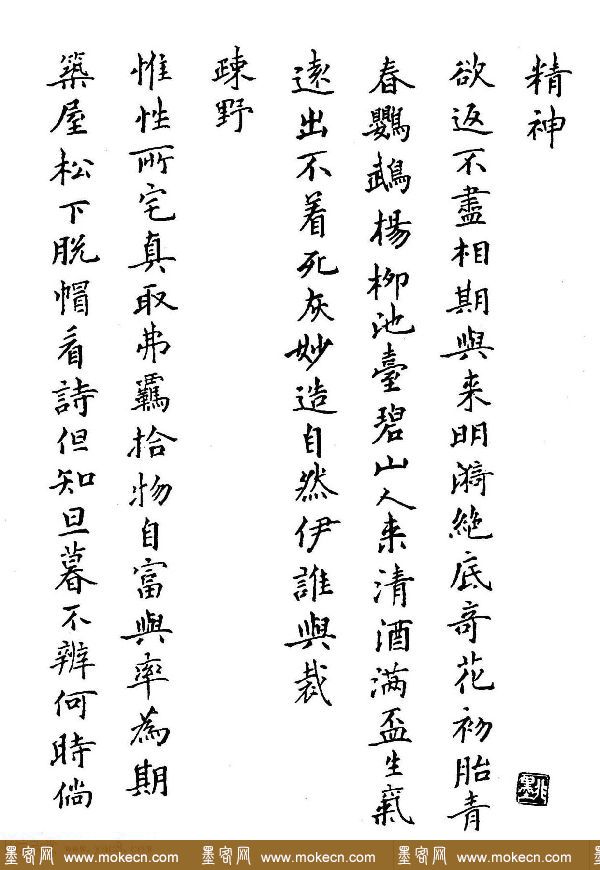 精神
欲返不盡相期與来明漪絶底竒花初胎青
春鸚鵡楊柳池臺碧山人来清酒满盃生氣
遠出不着死灰妙造自然伊誰與裁
疎野
惟性所宅真取弗羈拾物自富與率為期
築屋松下脱帽看詩但知旦暮不辨何時倘
墨客网 www.mokecn.com 墨客网 www.mokecn.com 墨客网 www.mokecn.com